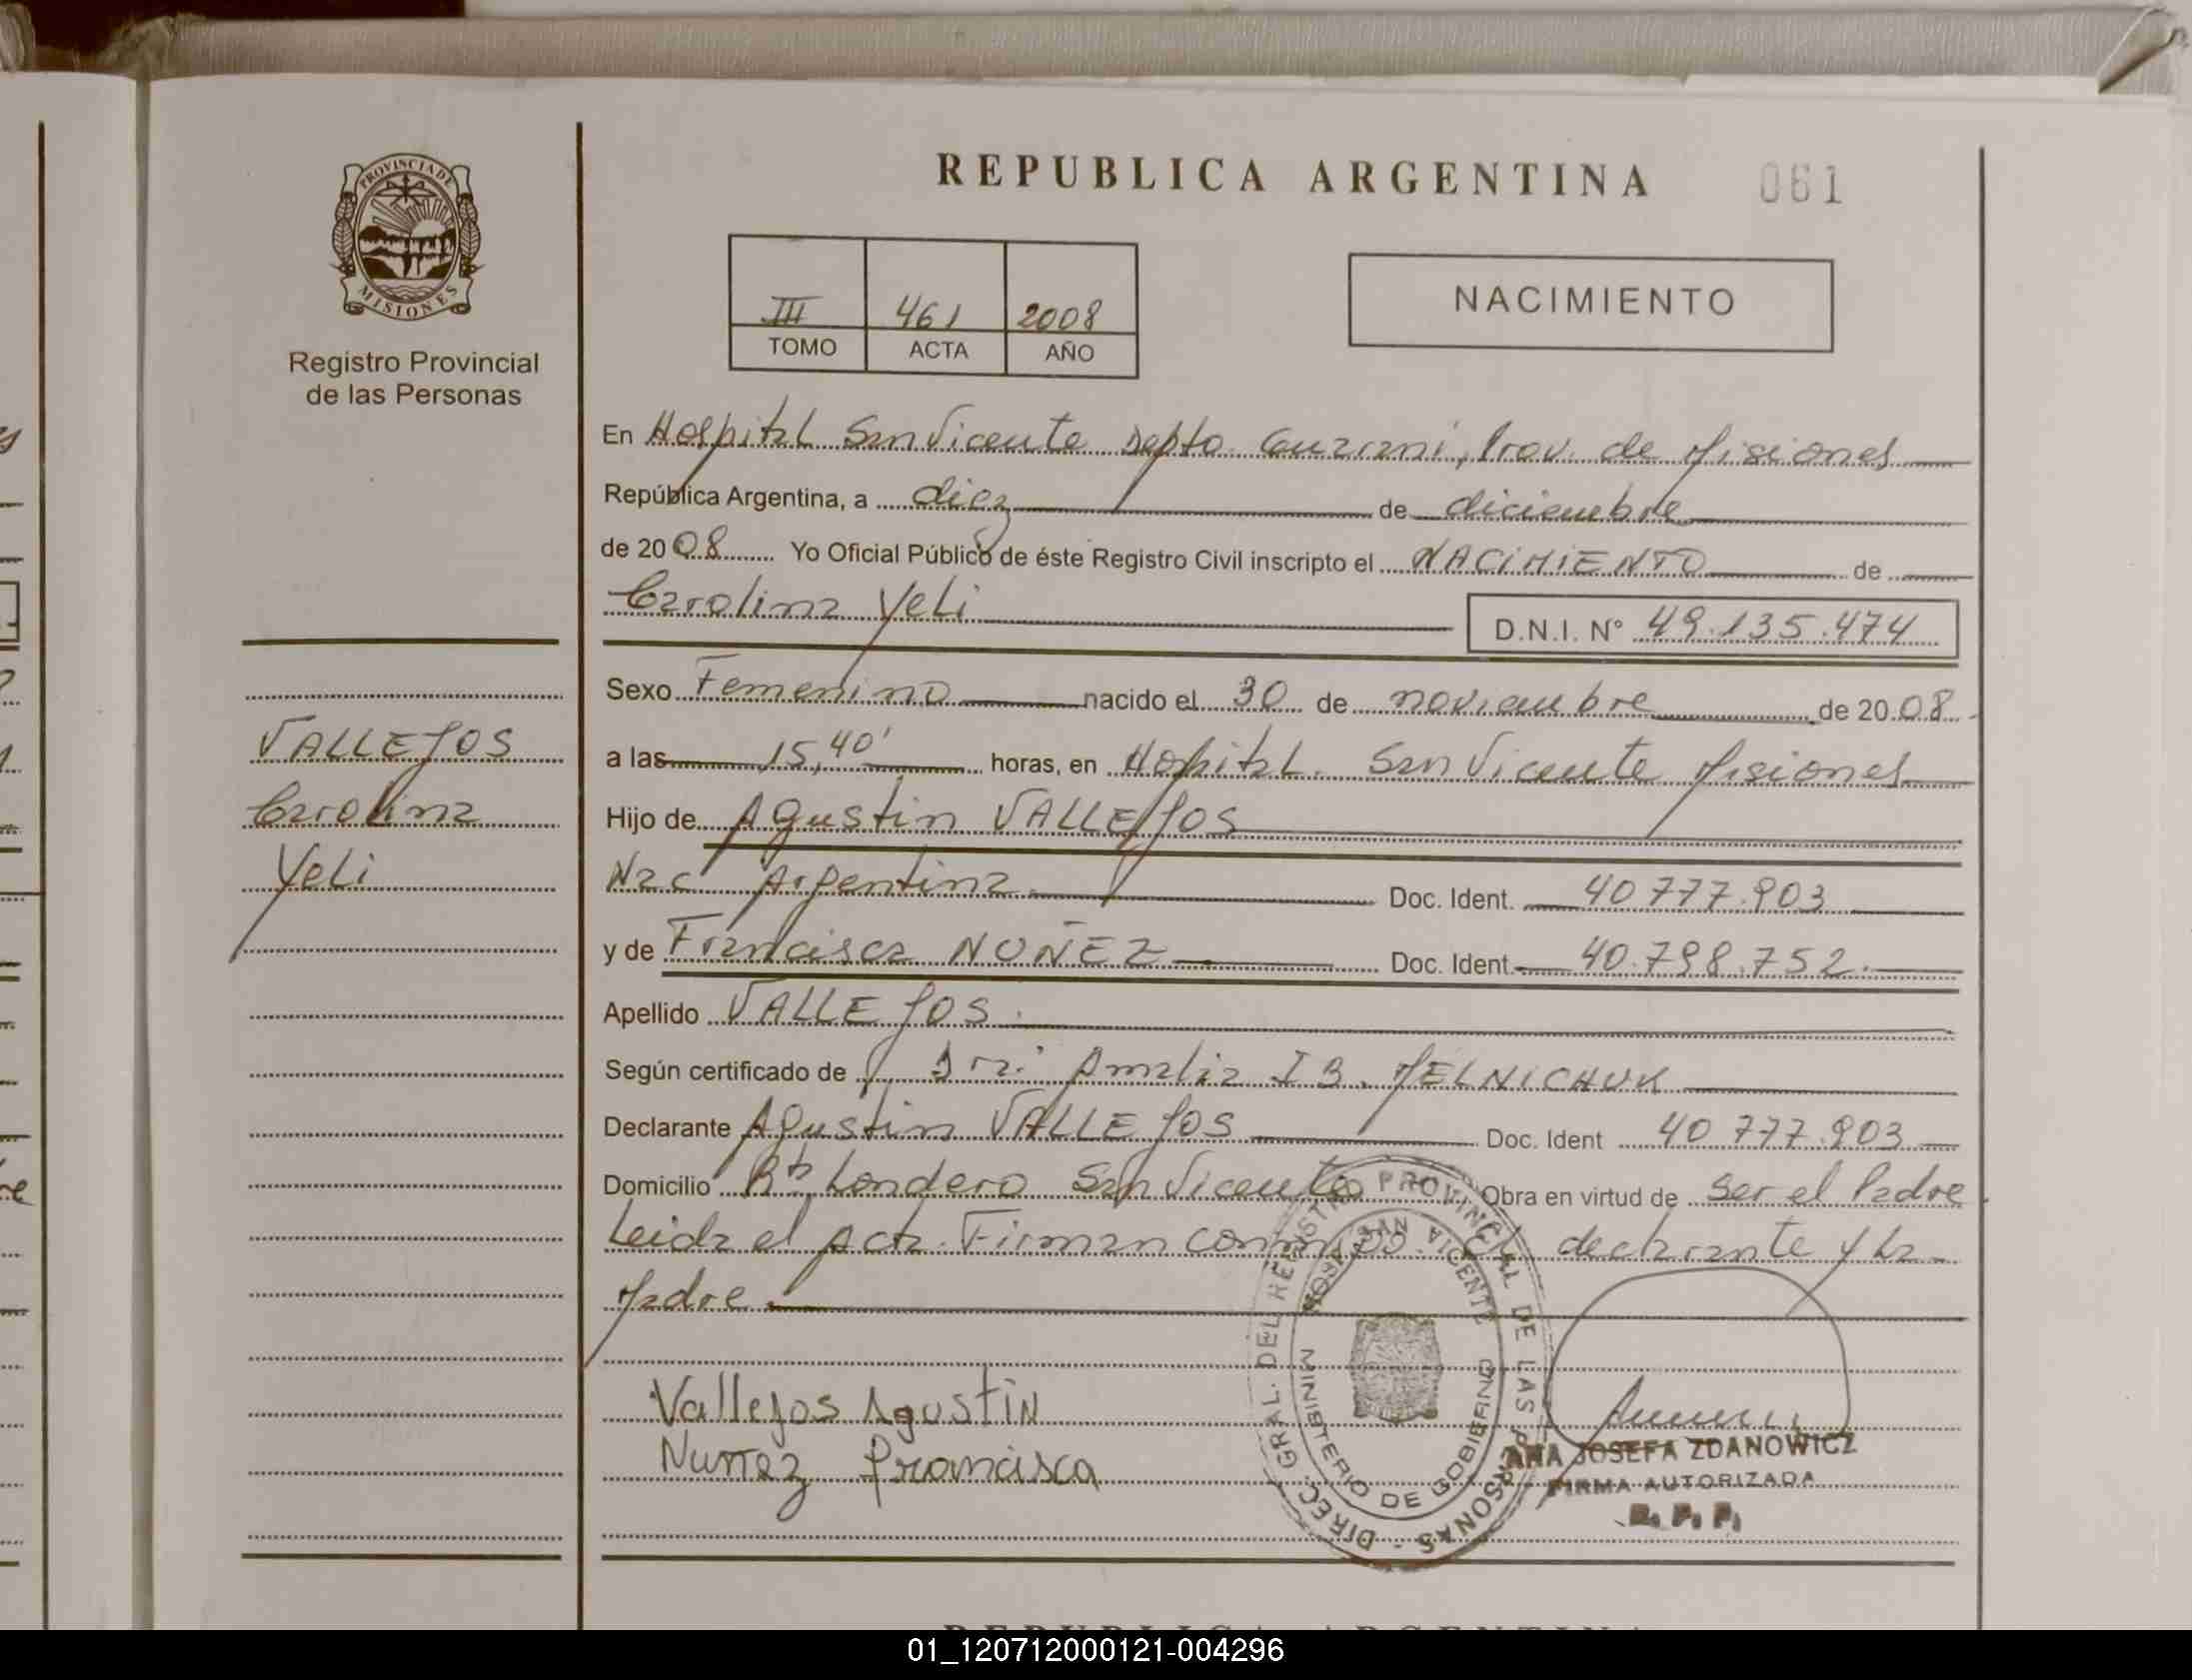 REPUBLICA ARGENTINA
061
PROVINCIA DE
MISIONES
Registro Provincial
de las Personas
III 461 2008
TOMO ACTA AÑO
NACIMIENTO
En Hospital San Vicente Depto. Guarani, Prov. de Misiones
República Argentina, a diez de diciembre
de 2008 Yo Oficial Público de éste Registro Civil inscripto el NACIMIENTO de
Carolina Yeli
D.N.I. N° 49.135.474
Sexo Femenino nacido el 30 de noviembre de 2008
a las 15,40' horas, en Hospital San Vicente Misiones
Hijo de Agustin VALLEJOS
Nac Argentina Doc. Ident. 40 777.903
y de Francisca NUÑEZ Doc. Ident. 40.798.752.
Apellido VALLEJOS.
Según certificado de Dra. Amalia I B. MELNICHUK
Declarante Agustin VALLEJOS Doc. Ident 40 777.903
Domicilio Bº Londero San Vicente Obra en virtud de ser el Padre
Leida el Acta. Firman declarante y La
Madre
VALLEJOS
Carolina
Yeli
Vallejos Agustin
Nuñez Francisca
DIREC. GRAL. DEL REGISTRO PROVINCIAL DE LAS PERSONAS
SAN VICENTE
MINISTERIO DE GOBIERNO
ANA JOSEFA ZDANOWICZ
FIRMA AUTORIZADA
R. P. P.
REPUBLICA ARGENTINA
01_120712000121-004296